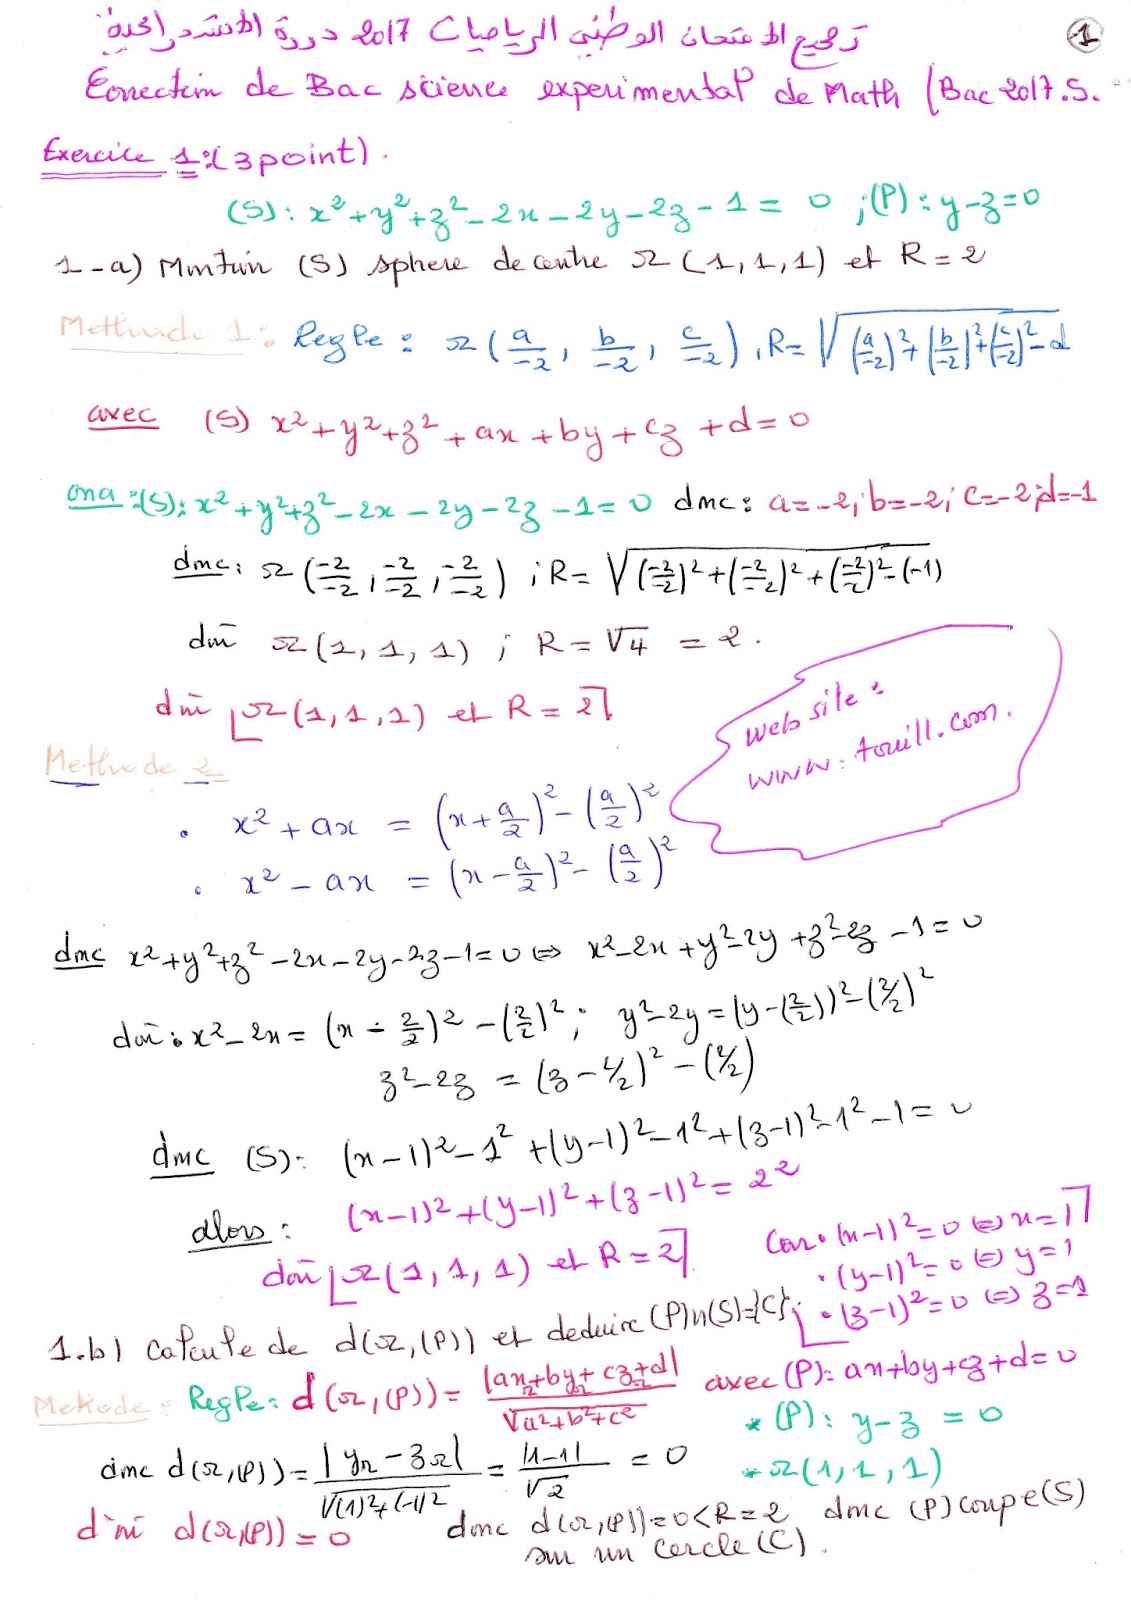 تصحيح الامتحان الوطني الرياضيات 2017 دورة الاستدراكية
1
Correction de Bac science experimental de Math (Bac 2017.S.
Exercice 1:(3 point).
(S): x²+y²+z²-2x-2y-2z-1=0 ;(P): y-z=0
1-a) Montrer (S) sphere de centre Ω(1,1,1) et R=2
Methode 1: Regle: Ω(a/-2, b/-2, c/-2), R=√((a/-2)²+(b/-2)²+(c/-2)²-d
avec (S) x²+y²+z²+ax+by+cz+d=0
ona:(S): x²+y²+z²-2x-2y-2z-1=0 donc: a=-2; b=-2; c=-2; d=-1
donc: Ω(-2/-2, -2/-2, -2/-2) ; R=√((-2/-2)²+(-2/-2)²+(-2/-2)²-(-1)
doù Ω(1,1,1) ; R=√4 = 2.
doù Ω(1,1,1) et R=2
web site:
www.touill.com.
Methode 2
• x²+ax = (x+a/2)²-(a/2)²
• x²-ax = (x-a/2)²-(a/2)²
donc x²+y²+z²-2x-2y-2z-1=0 ⇔ x²-2x+y²-2y+z²-2z-1=0
doù: x²-2x=(x-2/2)²-(2/2)²; y²-2y=(y-(2/2))²-(2/2)²
z²-2z=(z-2/2)²-(2/2)
donc (S): (x-1)²-1²+(y-1)²-1²+(z-1)²-1²-1=0
alors: (x-1)²+(y-1)²+(z-1)²=2²
doù Ω(1,1,1) et R=2
Car • (x-1)²=0 ⇔ x=1
• (y-1)²=0 ⇔ y=1
• (z-1)²=0 ⇔ z=1
1.b) Calcule de d(Ω,(P)) et deduire (P)∩(S)={C};
Methode: Regle: d(Ω,(P))=|axΩ+byΩ+czΩ+d|/√a²+b²+c² avec (P): ax+by+cz+d=0
* (P): y-z=0
* Ω(1,1,1)
donc d(Ω,(P))=|yΩ-zΩ|/√(1)²+(-1)²=|1-1|/√2=0
d'où d(Ω,(P))=0 donc d(Ω,(P))=0<R=2 donc (P) coupe (S)
sur un cercle (C).